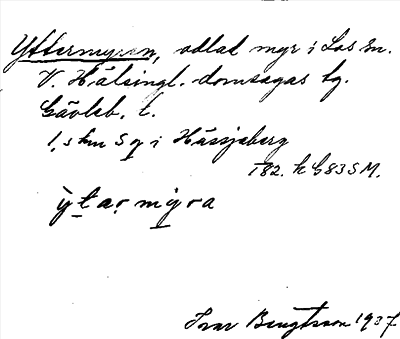 Yttermyren, odlat myr i Los sn.
V. Hälsingl. domsagas tg.
Gävleb. l.
1,5 km S g i Hässjeberg
T82. h G83SM.
ỳtaṛ mýra
Ivar Bengtsson 1937